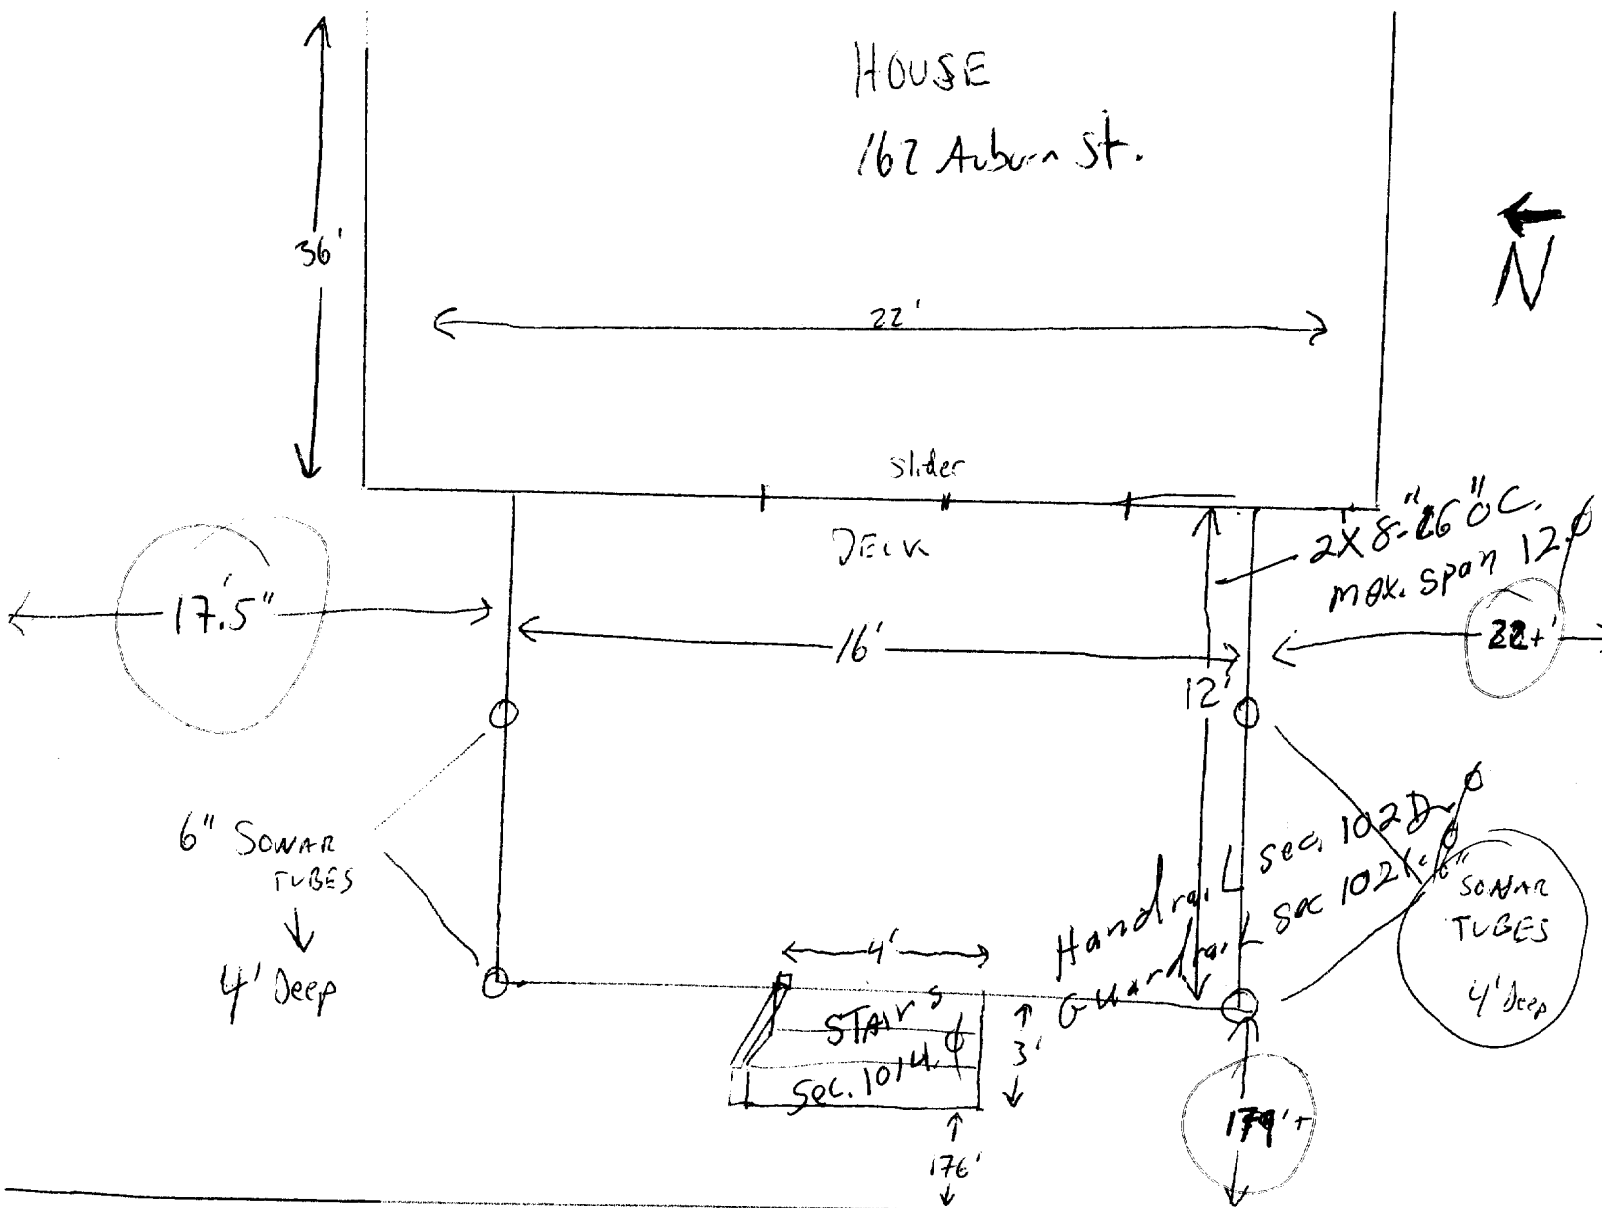 HOUSE
162 Auburn St.
36'
N
22'
slider
DECK
2X8-16" OC.
max. span 12.
17.5"
16'
22+'
12'
6" SONAR
TUBES
4' Deep
Handrail sec. 102D
Guardrail sec 102
6"
SONAR
TUBES
4' Deep
4'
STAIRS
Sec. 1014.
3'
176'
179'+